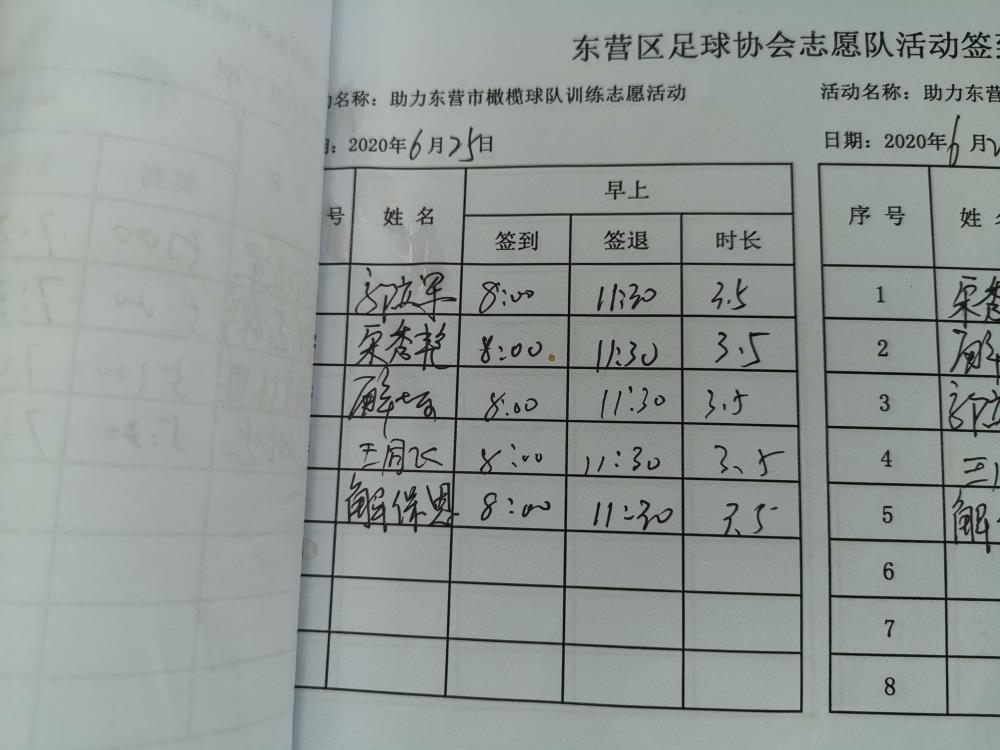 东营区足球协会志愿队活动签
名称：助力东营市橄榄球队训练志愿活动
活动名称：助力东营
：2020年6月25日
日期：2020年6月2
号 姓名 早上
签到 签退 时长
8:00 11:30 3.5
栗秀艳 8:00 11:30 3.5
解 8:00 11:30 3.5
王月飞 8:00 11:30 3.5
解保恩 8:00 11:30 3.5
序号 姓
1 栗秀
2 解
3
4 王
5 解
6
7
8